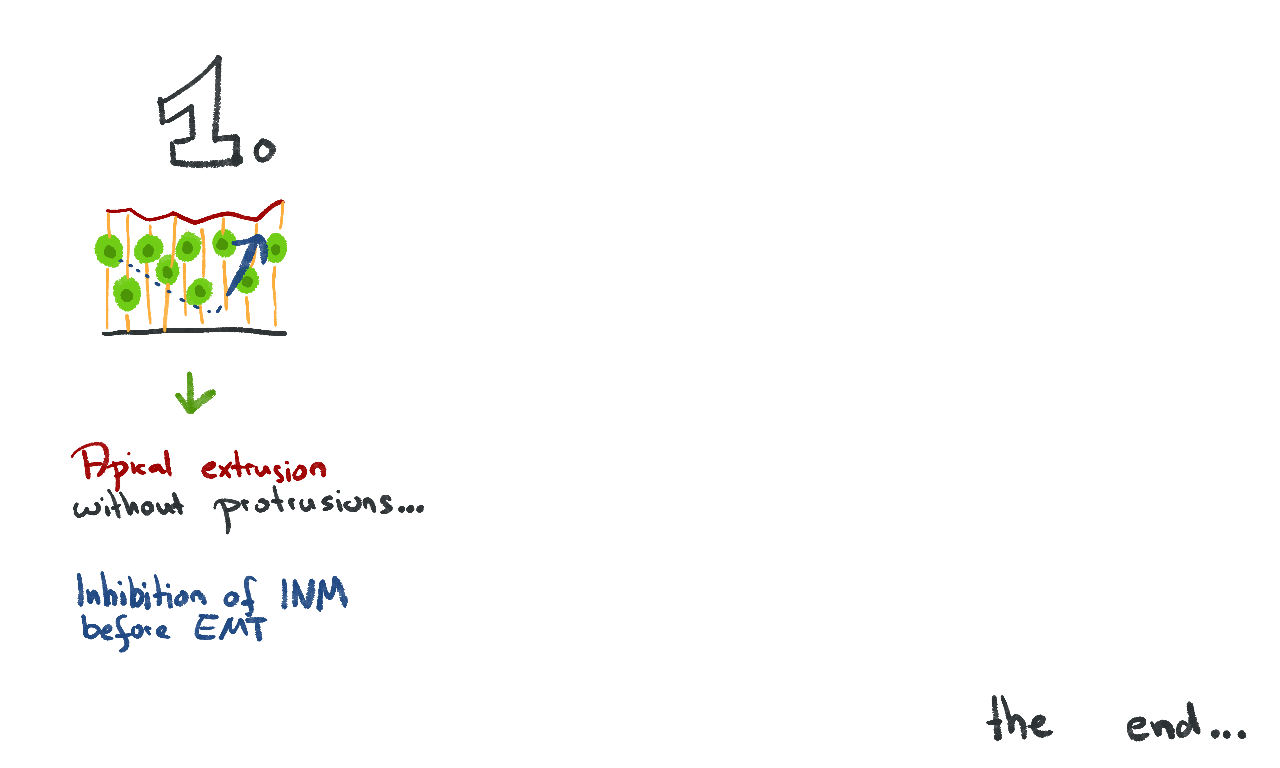 1.
Apical extrusion
without protrusions...
Inhibition of INM
before EMT
the end...